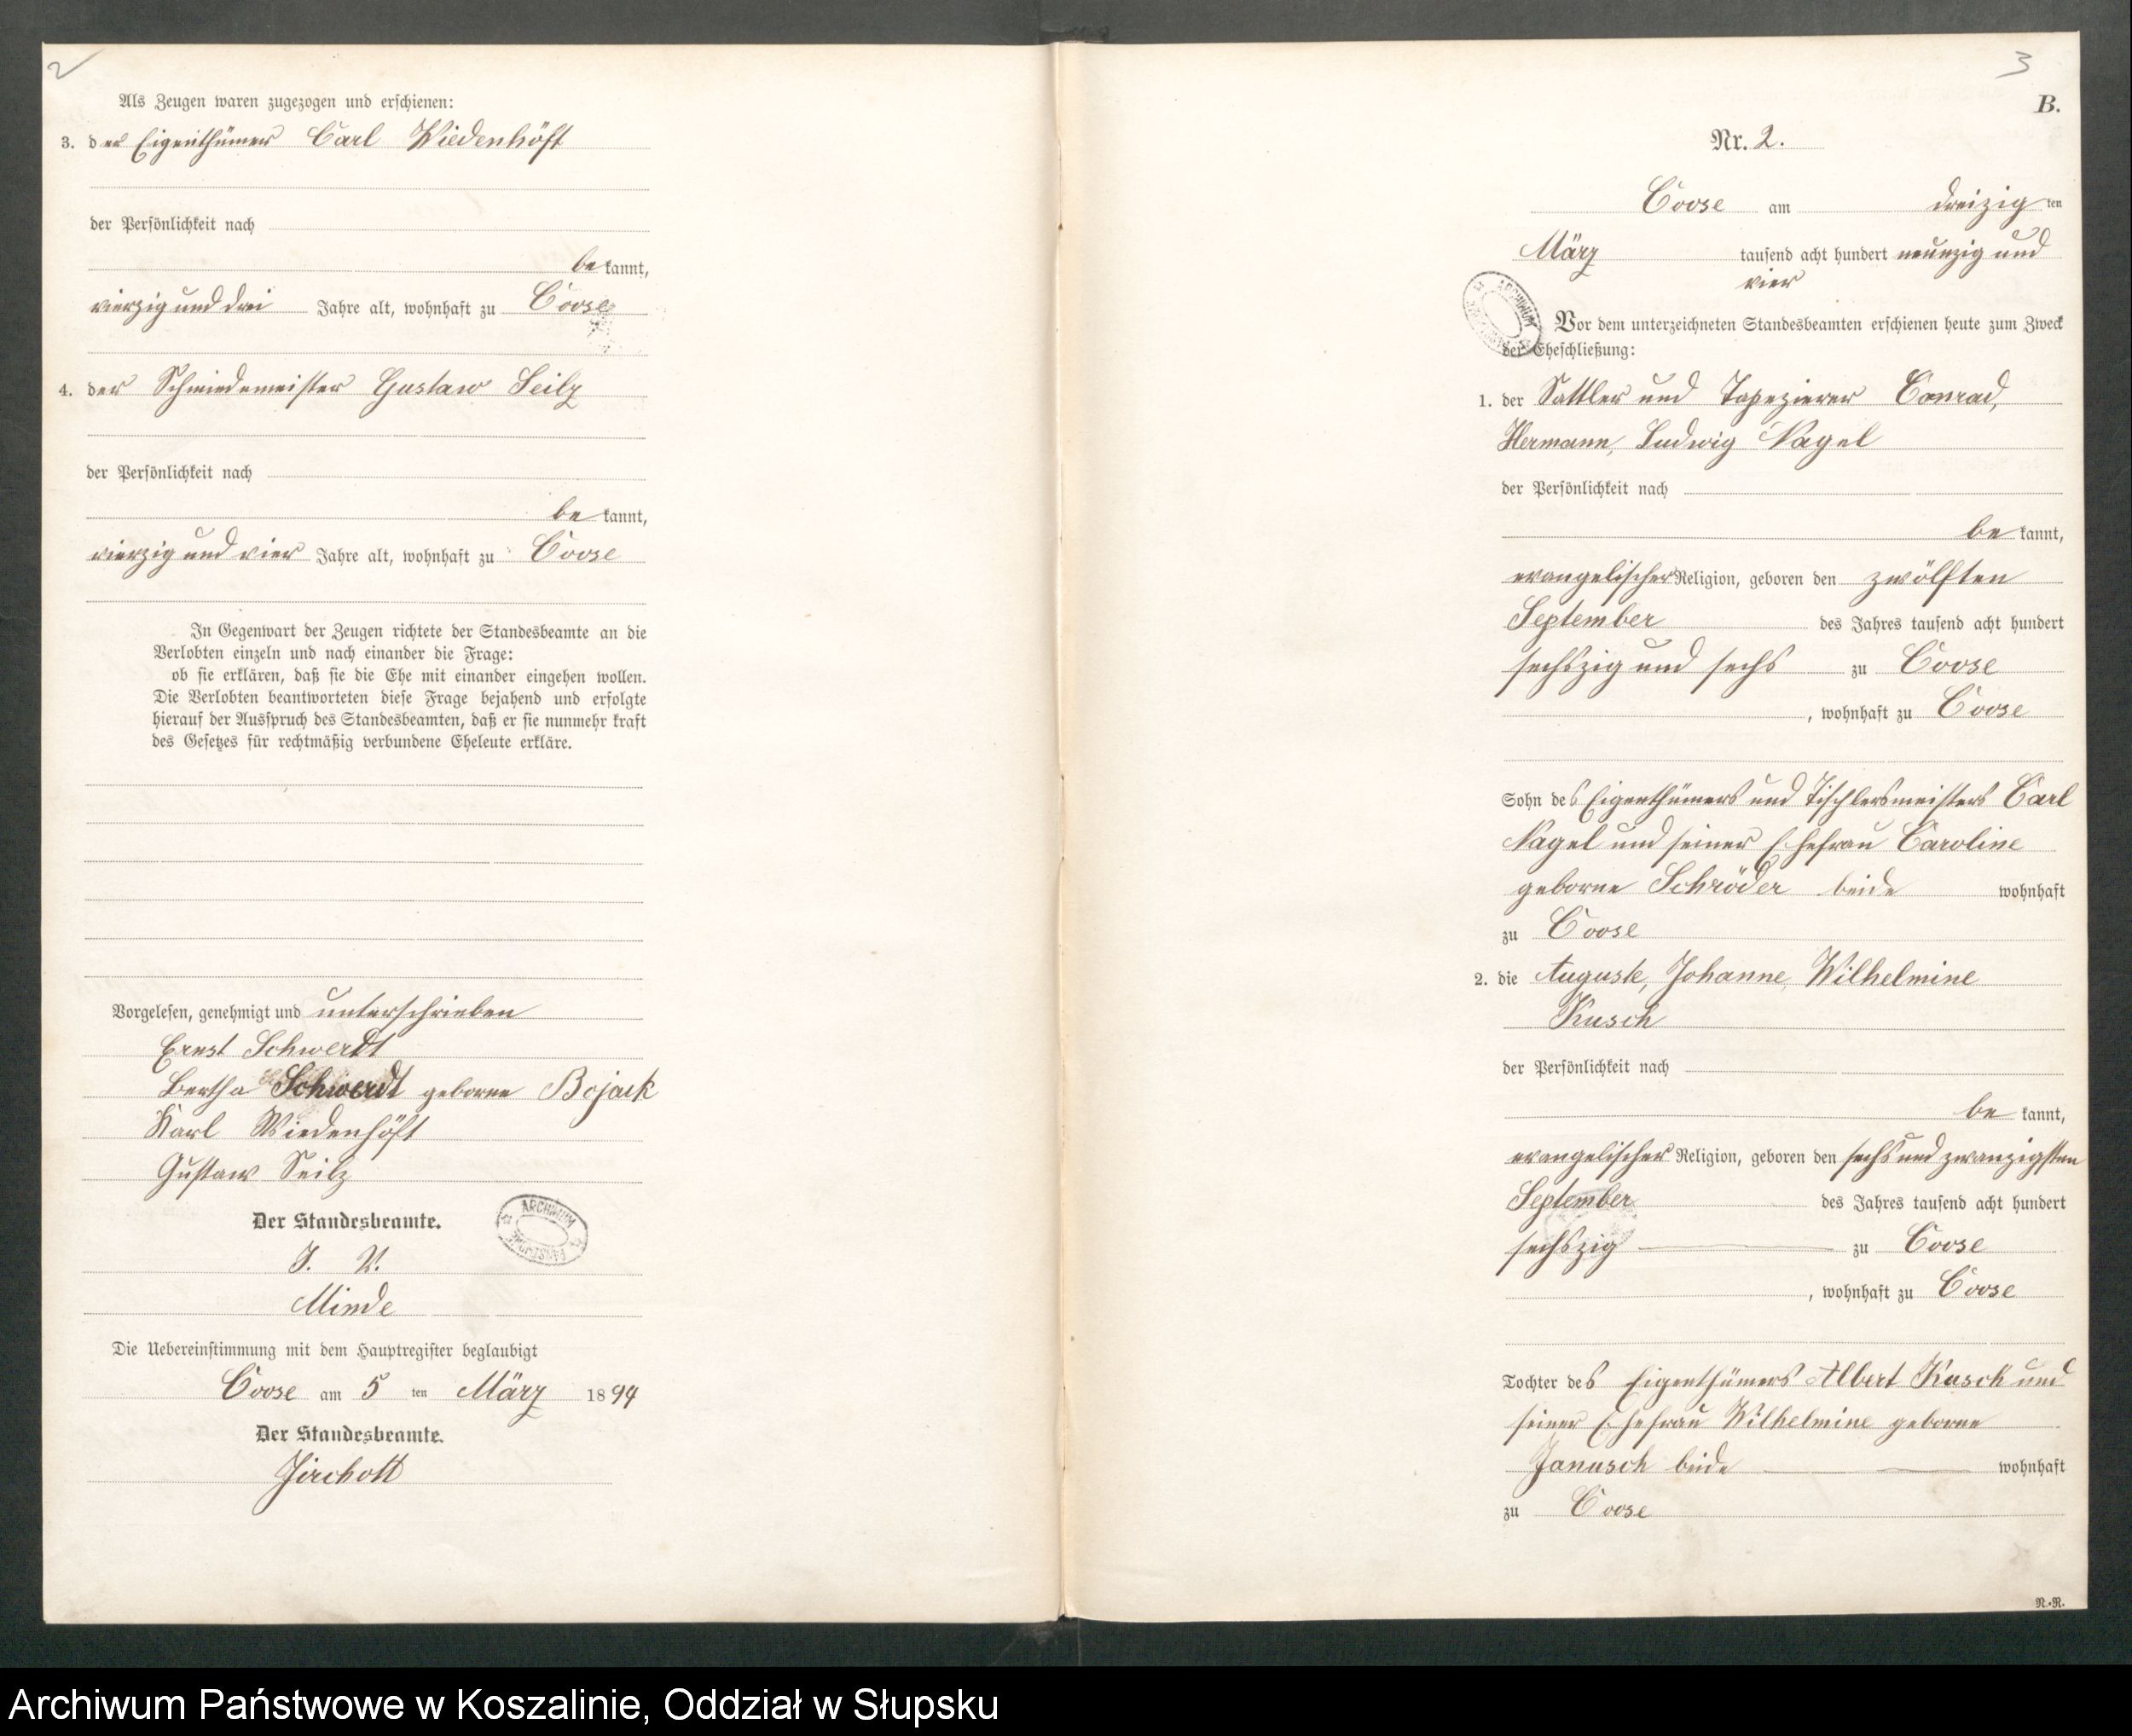 2
Als Zeugen waren zugezogen und erschienen:
3. der Eigenthümer Carl Wiedenhöft
der Persönlichkeit nach
be kannt,
vierzig und drei Jahre alt, wohnhaft zu Coose
4. der Schmiedemeister Gustaw Seilz
der Persönlichkeit nach
be kannt,
vierzig und vier Jahre alt, wohnhaft zu Coose
In Gegenwart der Zeugen richtete der Standesbeamte an die
Verlobten einzeln und nach einander die Frage:
ob sie erklären, daß sie die Ehe mit einander eingehen wollen.
Die Verlobten beantworteten diese Frage bejahend und erfolgte
hierauf der Ausspruch des Standesbeamten, daß er sie nunmehr kraft
des Gesetzes für rechtmäßig verbundene Eheleute erkläre.
Vorgelesen, genehmigt und unterschrieben
Ernst Schwerdt
Bertha Schwerdt geborne Bojack
Karl Wiedenhöft
Gustaw Seilz
Der Standesbeamte.
J. V.
Minde
Die Uebereinstimmung mit dem Hauptregister beglaubigt
Coose am 5 ten März 1894
Der Standesbeamte.
Jirchott
ARCHIWUM
3
B.
Nr. 2.
Coose am dreizig ten
März tausend acht hundert neunzig und
vier
ARCHIWUM
Vor dem unterzeichneten Standesbeamten erschienen heute zum Zweck
der Eheschließung:
1. der Sattler und Tapezierer Conrad,
Hermann, Ludwig Nagel
der Persönlichkeit nach
be kannt,
evangelischer Religion, geboren den zwölften
September des Jahres tausend acht hundert
sechszig und sechs zu Coose
, wohnhaft zu Coose
Sohn des Eigenthümers und Tischlersmeisters Carl
Nagel und seiner Ehefrau Caroline
geborne Schröder beide wohnhaft
zu Coose
2. die Auguste, Johanne, Wilhelmine
Kusch
der Persönlichkeit nach
be kannt,
evangelischer Religion, geboren den sechs und zwanzigsten
September des Jahres tausend acht hundert
sechszig zu Coose
, wohnhaft zu Coose
Tochter des Eigenthümers Albert Kusch und
seiner Ehefrau Wilhelmine geborne
Janusch beide wohnhaft
zu Coose
N.-N.
Archiwum Państwowe w Koszalinie, Oddział w Słupsku